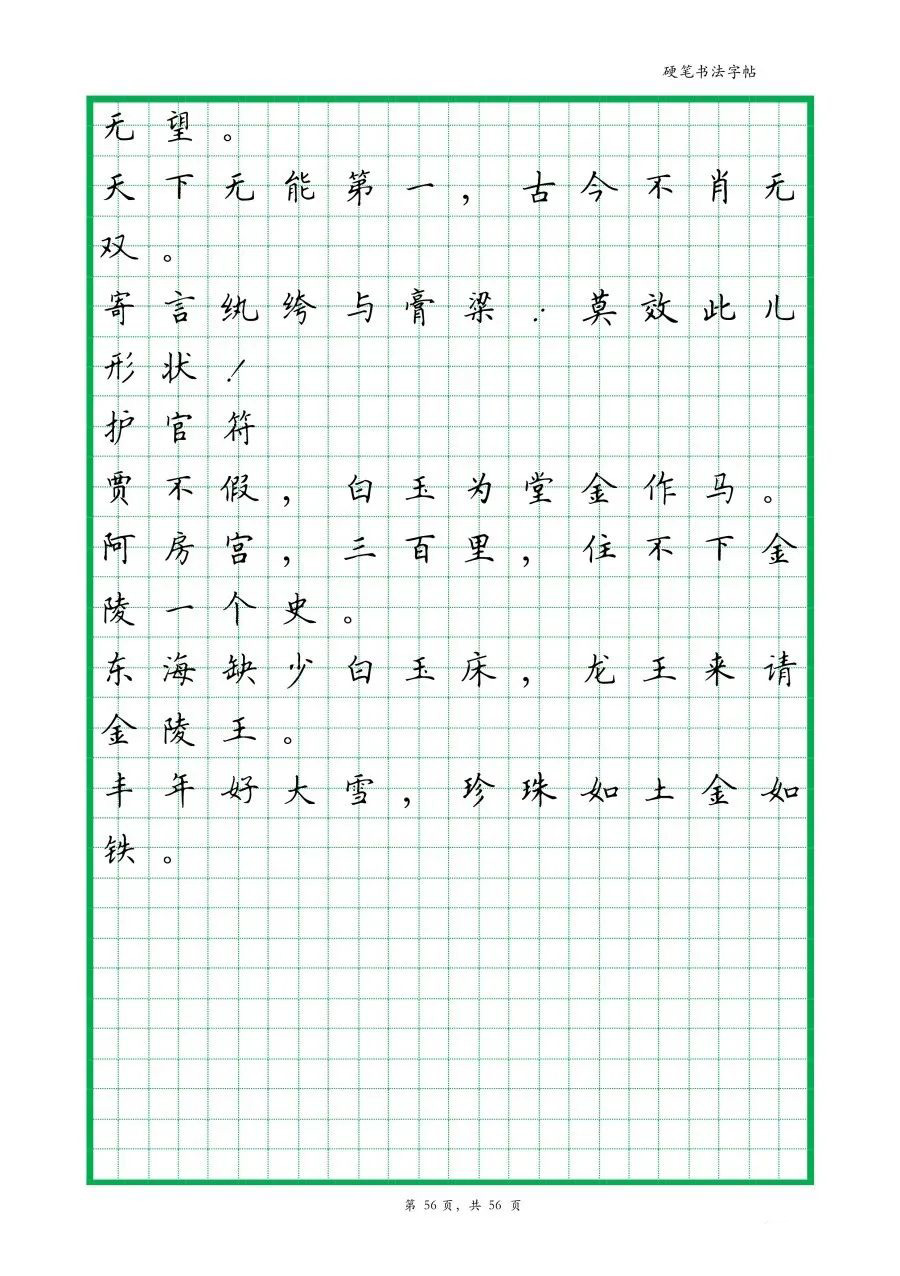 硬笔书法字帖
无望。
天下无能第一，古今不肖无
双。
寄言纨绔与膏粱：莫效此儿
形状！
护官符
贾不假，白玉为堂金作马。
阿房宫，三百里，住不下金
陵一个史。
东海缺少白玉床，龙王来请
金陵王。
丰年好大雪，珍珠如土金如
铁。
第 56 页，共 56 页